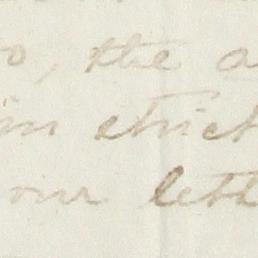 o, the a
in strict
our lett